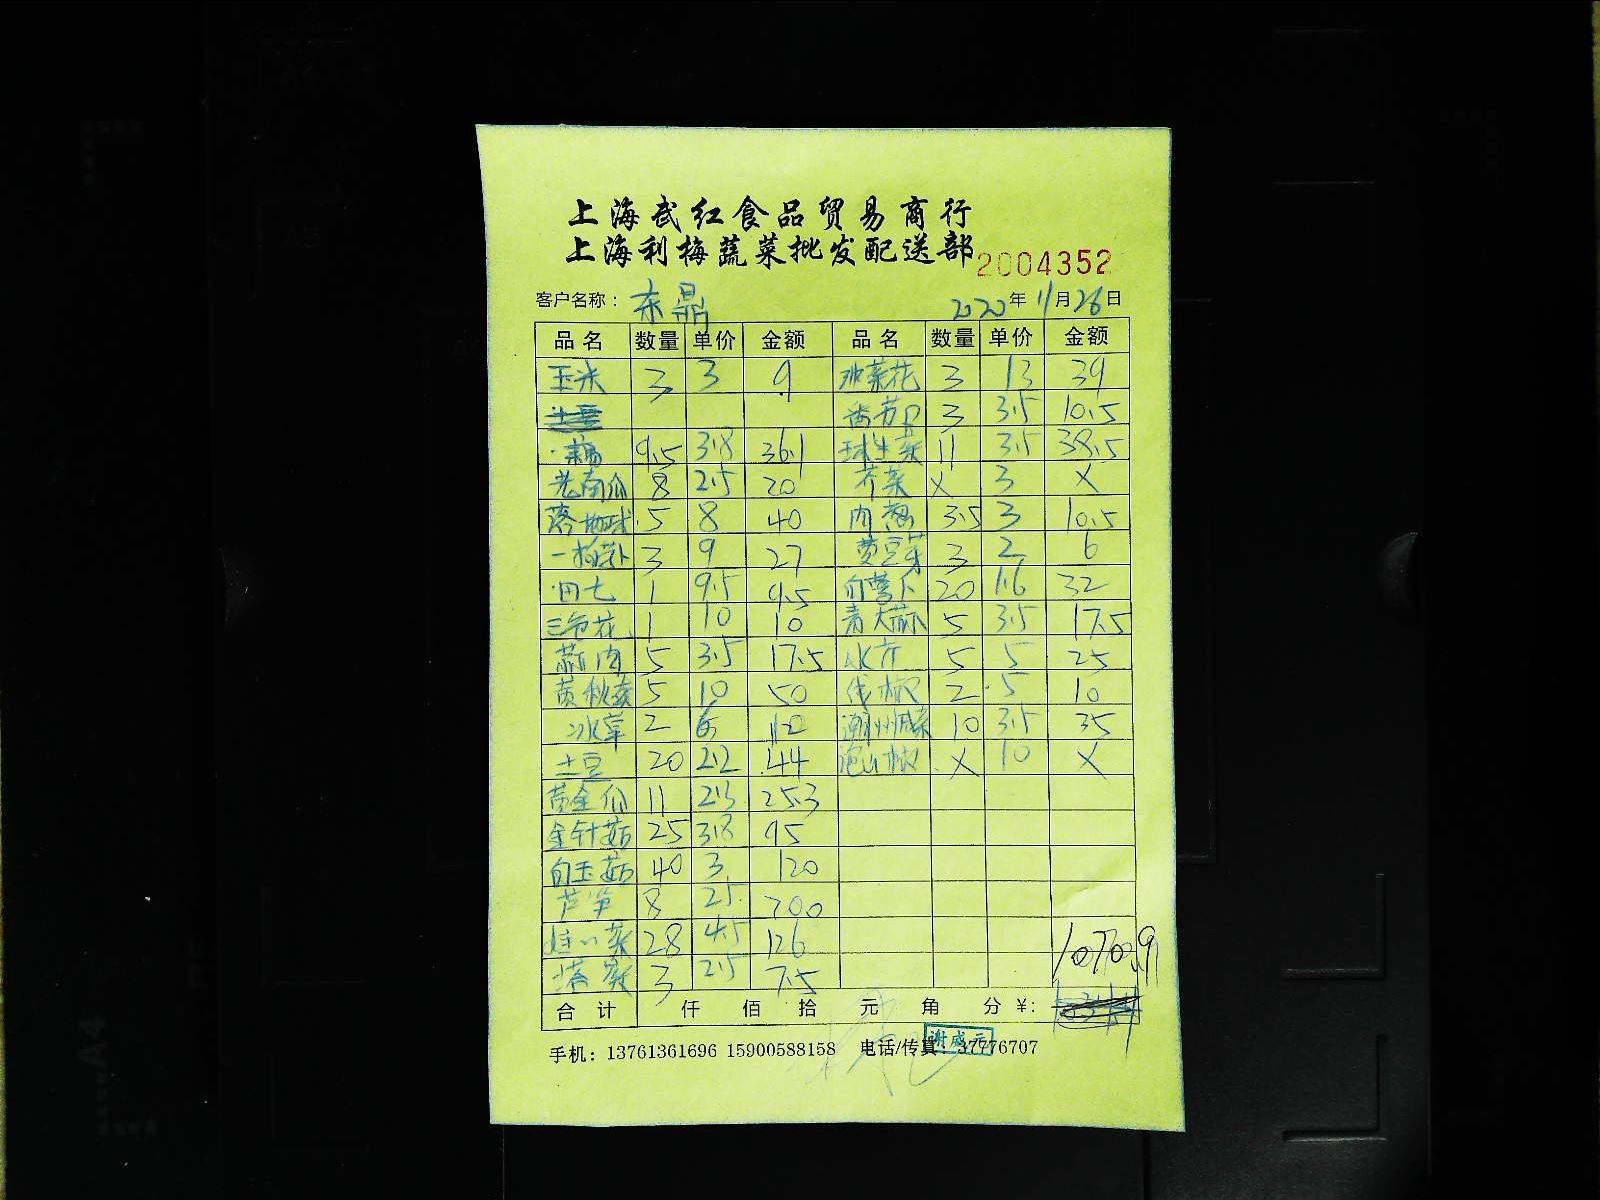 上海武红食品贸易商行
上海利梅蔬菜批发配送部
2004352
客户名称： 东鼎 2020年11月26日
品名 数量 单价 金额 品名 数量 单价 金额
玉米 3 3 9 冰菜花 3 13 39
土豆 番茄 3 3.5 10.5
藕 9.5 3.8 36.1 球生菜 11 3.5 38.5
老南瓜 8 2.5 20 芥菜 X 3 X
落地球 5 8 40 内葱 3.5 3 10.5
3 9 27 黄豆芽 3 2 6
田七 1 9.5 9.5 白萝卜 20 1.6 32
三色花 1 10 10 青大蒜 5 3.5 17.5
蒜肉 5 3.5 17.5 水芹 5 5 25
黄秋葵 5 10 50 线椒 2 5 10
冰草 2 6 12 潮州咸菜 10 3.5 35
土豆 20 2.2 44 泡山椒 X 10 X
黄金瓜 11 2.3 25.3
金针菇 25 3.8 95
白玉菇 40 3 120
芦笋 8 25 200
娃娃菜 28 4.5 126
塔菜 3 2.5 7.5
1070.9
合计 仟 佰 拾 元 角 分 ¥:
谢盛元
手机：13761361696 15900588158 电话/传真：37776707